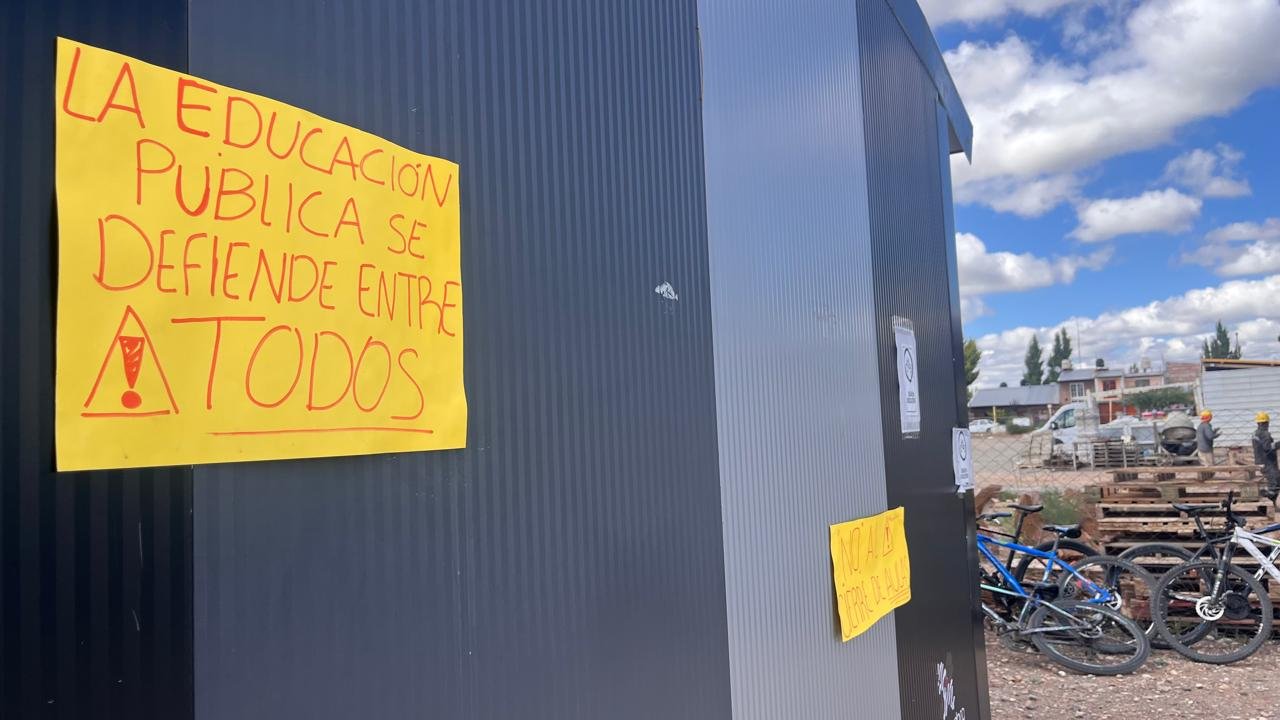 LA EDUCACIÓN
PÚBLICA SE
DEFIENDE ENTRE
TODOS
NO AL
CIERRE DE AULAS